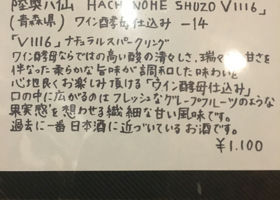 陸奥八仙 HACHINOHE SHUZO V1116」
(青森県) ワイン酵母仕込み -14
「V1116」ナチュラルスパークリング
ワイン酵母ならではの高い酸の清々しさ、瑞々しい甘さを
伴なった柔らかな旨味が調和した味わいを
心地良くお楽しみ頂ける"ワイン酵母仕込み"
口の中に広がるのはフレッシュなグレープフルーツのような
果実感を想わせる繊細な甘い風味です。
過去に一番日本酒に近づいているお酒です。
¥1.100